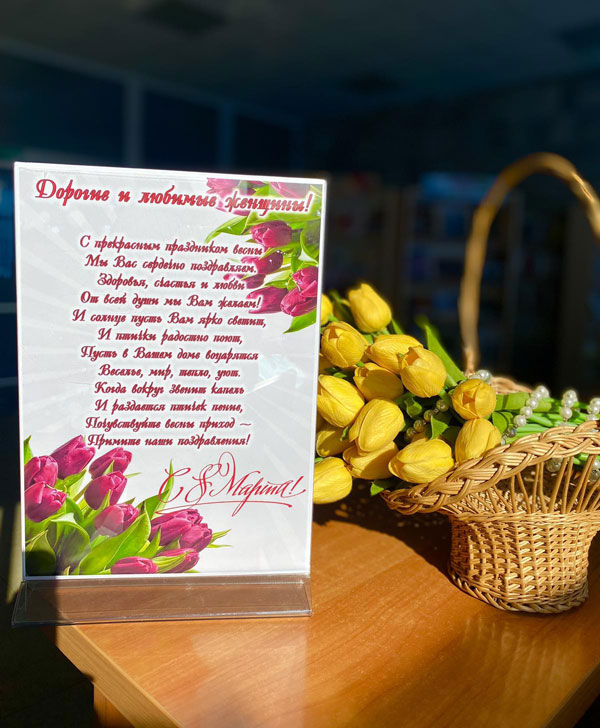 Дорогие и любимые женщины!
С прекрасным праздником весны
Мы Вас сердечно поздравляем.
Здоровья, счастья и любви
От всей души мы Вам желаем!
И солнце пусть Вам ярко светит,
И птички радостно поют,
Пусть в Вашем доме воцарятся
Веселье, мир, тепло, уют.
Когда вокруг звенит капель
И раздается птичек пение,
Почувствуйте весны приход ~
Примите наши поздравления!
С 8 Марта!